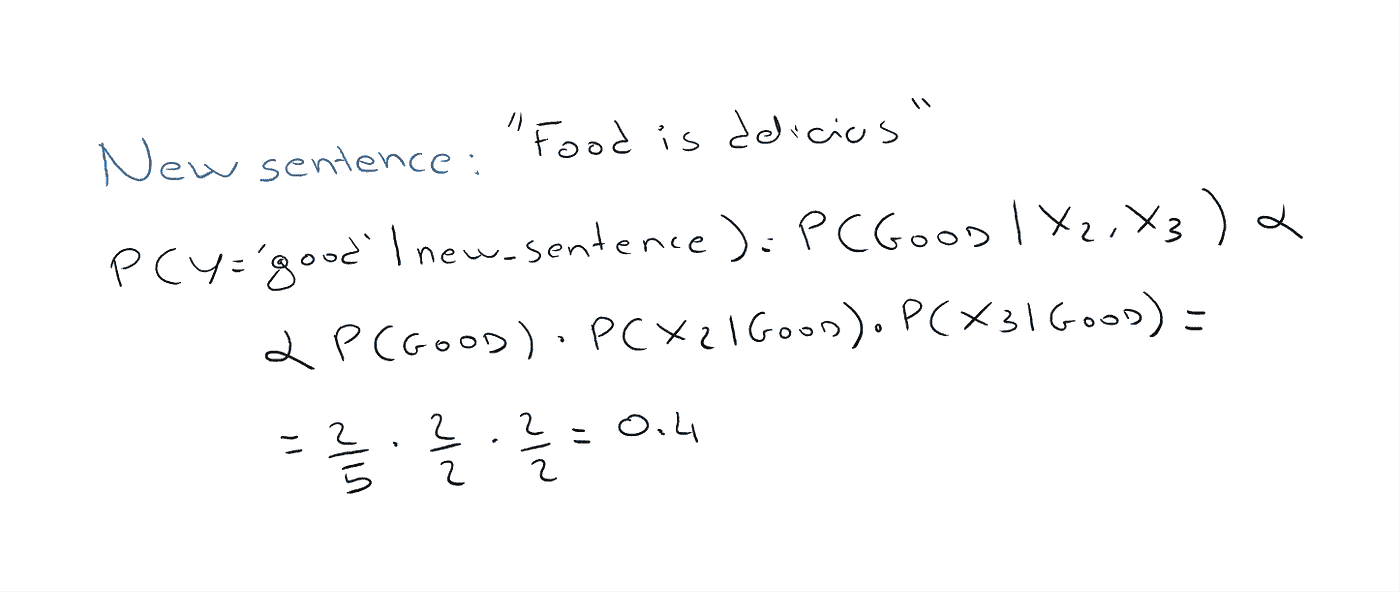 New sentence: "Food is delicius"
P(Y='good' | new_sentence) = P(GOOD | X2, X3) ∝
∝ P(GOOD) · P(X2 | GOOD) · P(X3 | GOOD) =
= 2/5 · 2/2 · 2/2 = 0.4